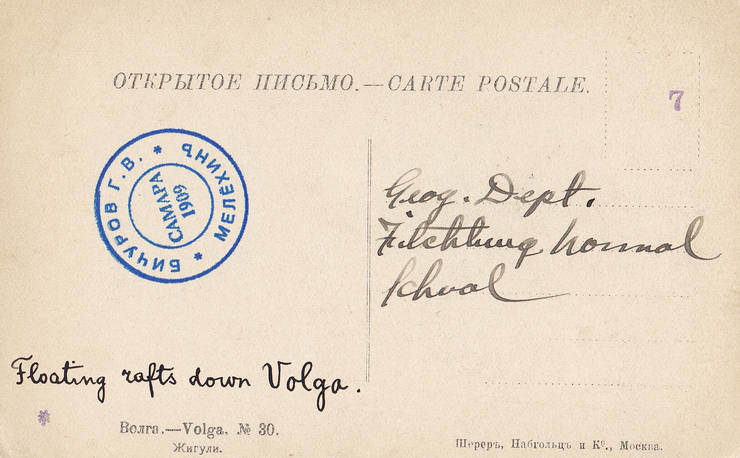 ОТКРЫТОЕ ПИСЬМО.—CARTE POSTALE.
7
* БИЧУРОВ Г. В. * МЕЛЕХИНЪ
САМАРА
1909
Geog. Dept.
Fitchburg Normal
School
Floating rafts down Volga.
Волга.—Volga. № 30.
Жигули.
Шереръ, Набгольцъ и Ко., Москва.